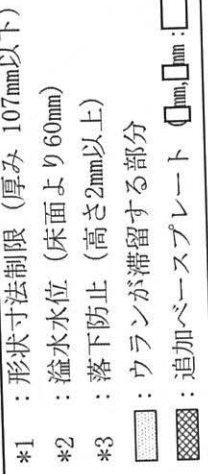 *1 : 形状寸法制限 (厚み 107mm以下)
*2 : 溢水水位 (床面より60mm)
*3 : 落下防止 (高さ2mm以上)
: ウランが滞留する部分
: 追加ベースプレート (mm, mm :